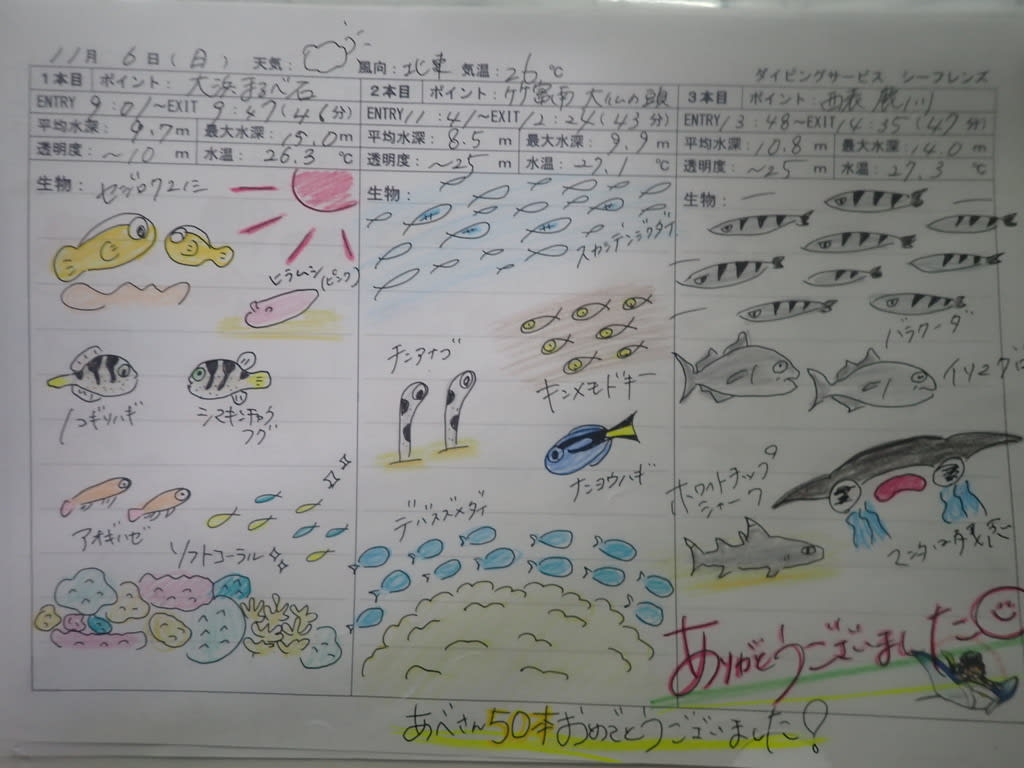 11月 6日(日) 天気: 風向:北東 気温:26℃
ダイビングサービス シーフレンズ
1本目 ポイント:大浜まるべ石
ENTRY 9:01〜EXIT 9:47(46分)
平均水深: 9.7m 最大水深: 15.0m
透明度: 〜10m 水温: 26.3℃
生物:
ヒラムシ(ピンク)
ノコギリハギ
シマキンチャク
フグ
ソフトコーラル
2本目 ポイント:竹富南 大仏の頭
ENTRY 11:41〜EXIT 12:24(43分)
平均水深: 8.5m 最大水深: 9.9m
透明度: 〜25m 水温: 27.1℃
生物:
スカシテンジクダイ
チンアナゴ
キンメモドキ
ナンヨウハギ
デバスズメダイ
3本目 ポイント:西表
ENTRY 13:48〜EXIT 14:35(47分)
平均水深: 10.8m 最大水深: 14.0m
透明度: 〜25m 水温: 27.3℃
生物:
バラクーダ
ホワイトチップ
シャーク
ありがとうございました
あべさん50本おめでとうございました!